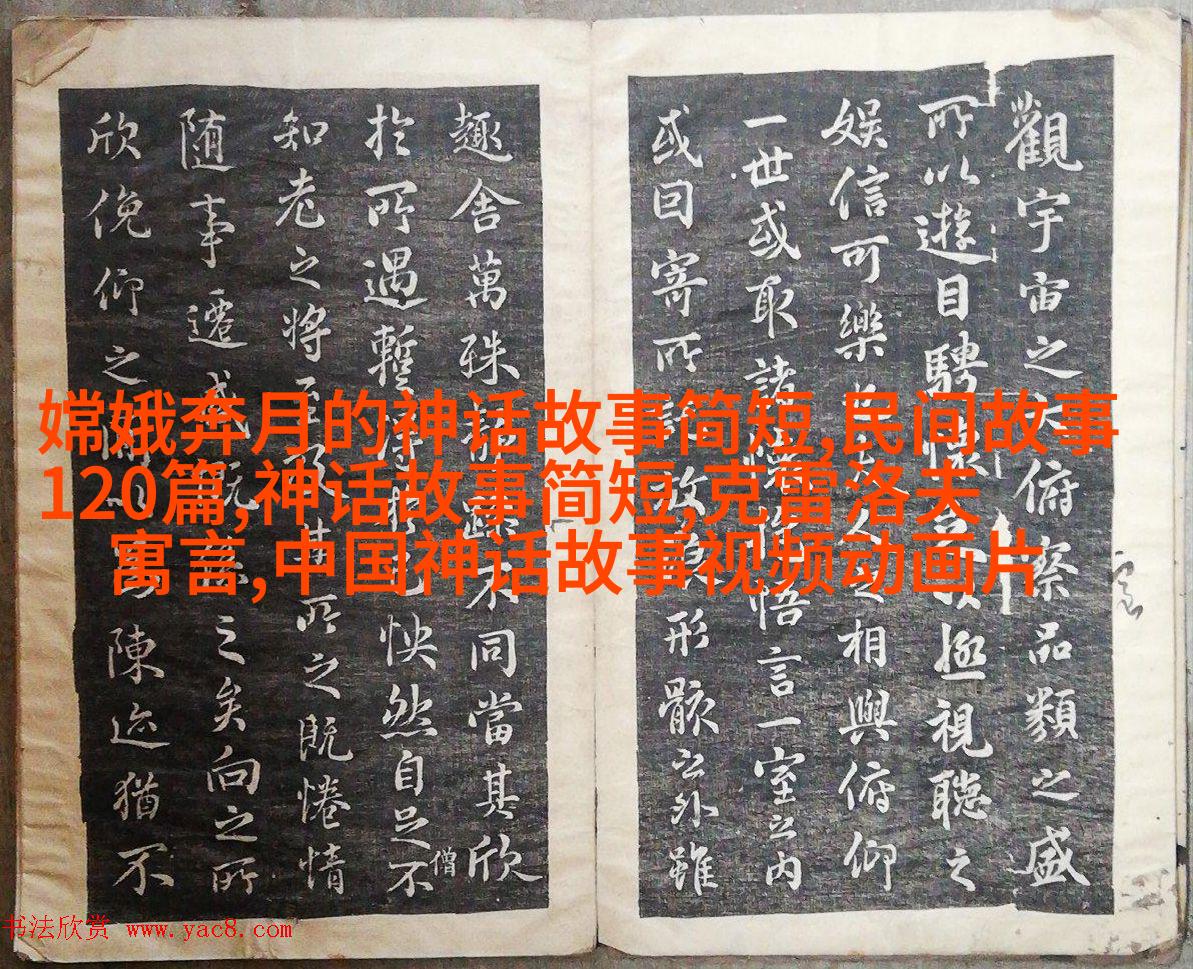 觀宇宙之大俯察品類之盛
所以遊目騁懷足以極視聽之
娛信可樂也夫人之相與俯仰
一世或取諸懷抱悟言一室之內
或因寄所託放浪形骸之外雖
趣舍萬殊靜躁不同當其欣
於所遇暫得於己怏然自足不
僧
知老之將至及其所之既惓情
随事遷感慨係之矣向之所
欣俛仰之閒以為陳迹猶不
嫦娥奔月的神话故事简短,民间故事
120篇,神话故事简短,克雷洛夫
寓言,中国神话故事视频动画片
书法欣赏 www.yac8.com